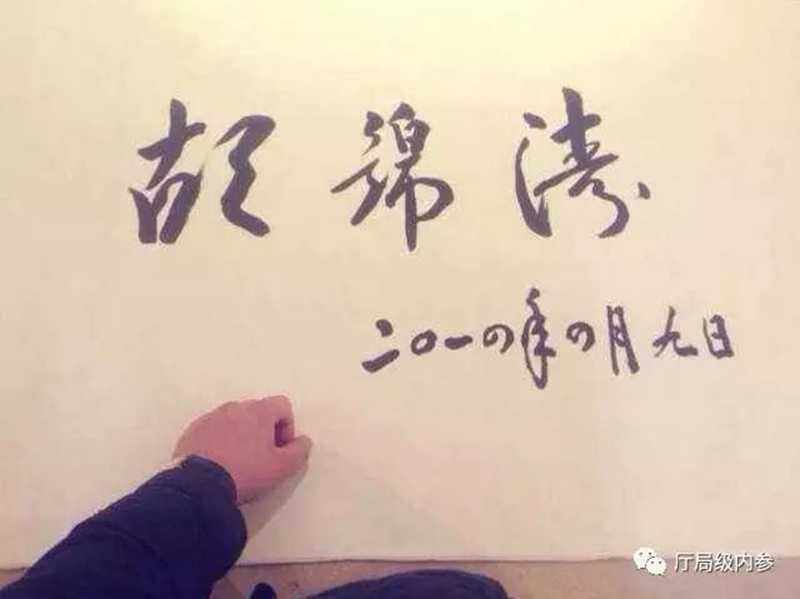 胡锦涛
二〇一四年四月九日
厅局级内参